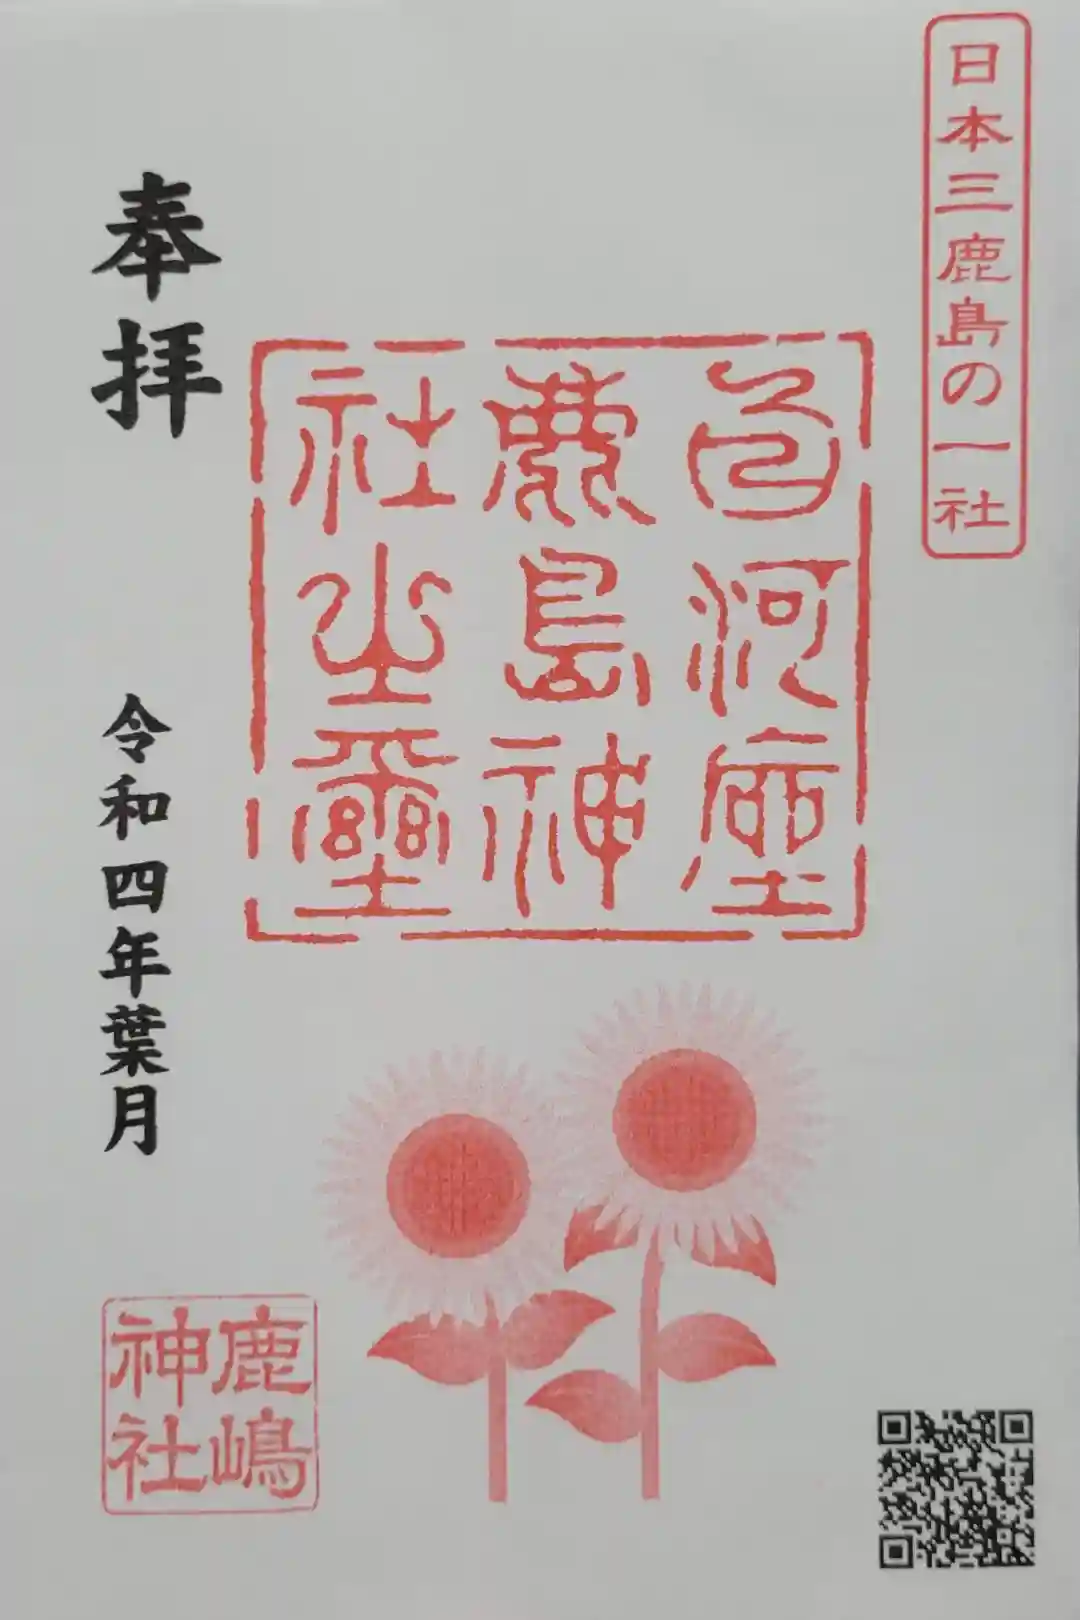 日本三鹿島の一社
奉拝
色河座
鹿島神
社之璽
令和四年葉月
鹿嶋
神社